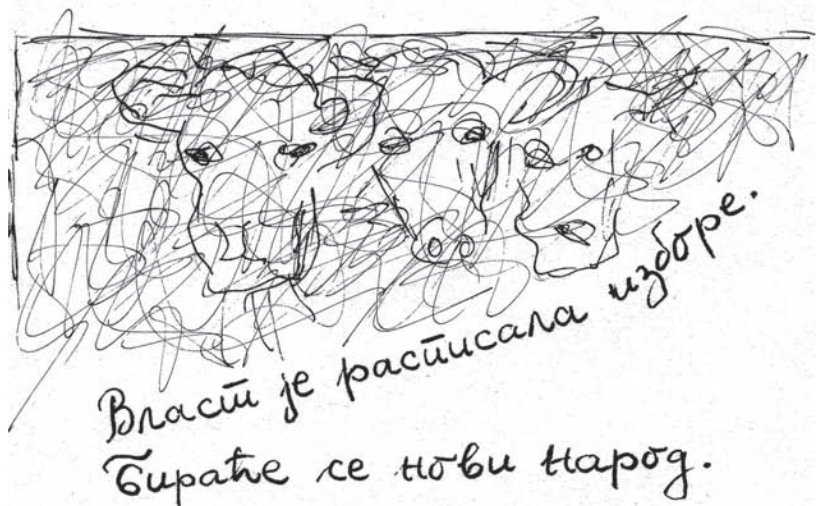 Власт је расписала изборе.
Бираће се нови народ.